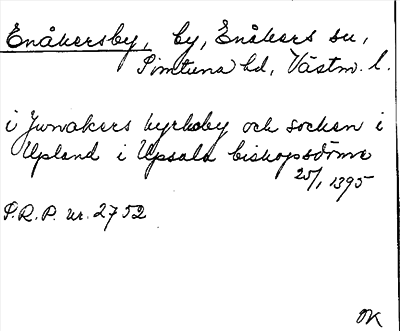 Enåkersby, by, Enåkers sn,
Simtuna hd, Västm. l.
i Juwakers kyrkoby och socken i
Upland i Upsala biskopsdöme
25/1 1395
S.R.P. nr. 2752
OK